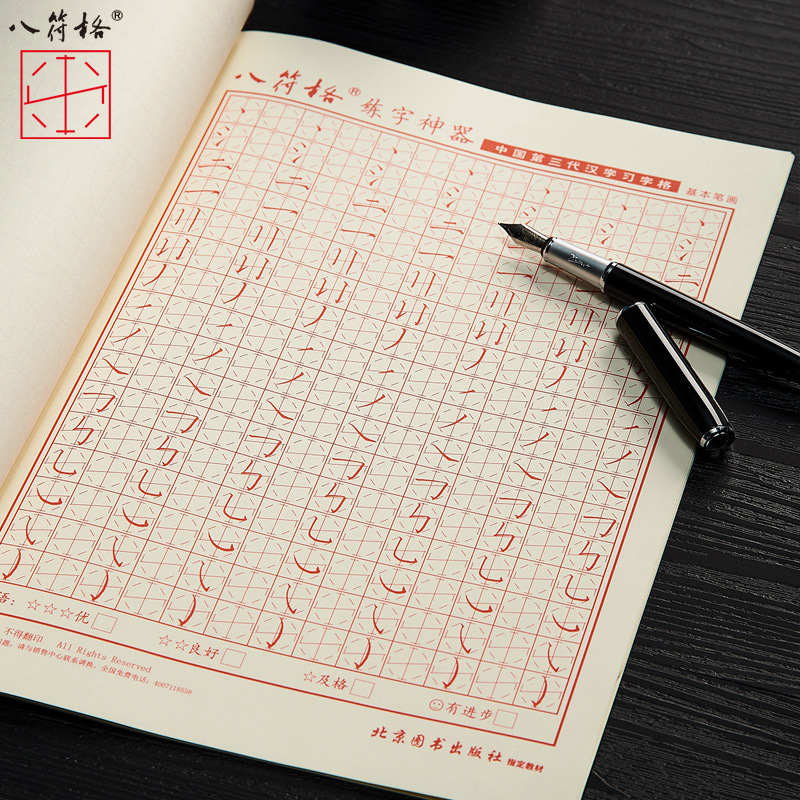 八符格®
八符格® 练字神器
中国第三代汉字习字格 基本笔画
语：☆☆☆优□ ☆☆良好□ ☆及格□ ☺有进步□
不得翻印 All Rights Reserved
题，请与销售中心联系调换。全国免费电话：4007118558
北京图书出版社 指定教材